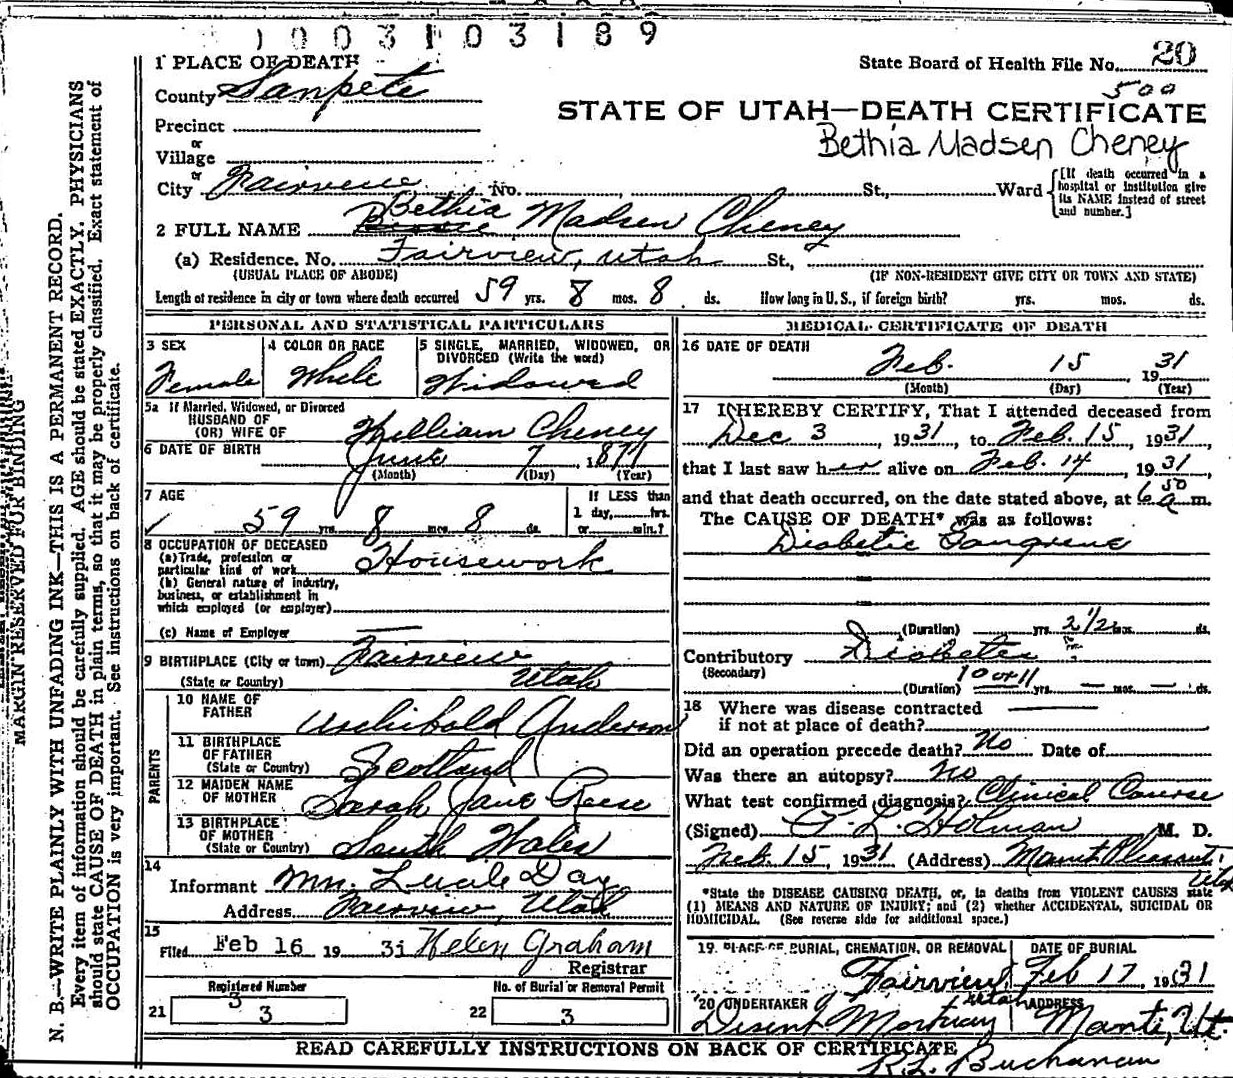 1003103189
1 PLACE OF DEATH
State Board of Health File No. 20
County Sanpete
500
STATE OF UTAH—DEATH CERTIFICATE
Precinct
or
Bethia Madsen Cheney
Village
or
City Fairview, No. St., Ward
[If death occurred in a hospital or institution give its NAME instead of street and number.]
Bethia
2 FULL NAME Madsen Cheney
(a) Residence. No. Fairview, Utah St.,
(USUAL PLACE OF ABODE) (IF NON-RESIDENT GIVE CITY OR TOWN AND STATE)
Length of residence in city or town where death occurred 59 yrs. 8 mos. 8 ds. How long in U. S., if foreign birth? yrs. mos. ds.
PERSONAL AND STATISTICAL PARTICULARS
3 SEX
Female
4 COLOR OR RACE
White
5 SINGLE, MARRIED, WIDOWED, OR
DIVORCED (Write the word)
Widowed
5a If Married, Widowed, or Divorced
HUSBAND OF
(OR) WIFE OF William Cheney
6 DATE OF BIRTH June 7, 1871
(Month) (Day) (Year)
7 AGE
59 yrs. 8 mos. 8 ds.
If LESS than
1 day, hrs.
or min.?
8 OCCUPATION OF DECEASED
(a) Trade, profession or
particular kind of work Housework
(b) General nature of industry,
business, or establishment in
which employed (or employer)
(c) Name of Employer —
9 BIRTHPLACE (City or town) Fairview
(State or Country) Utah
PARENTS
10 NAME OF
FATHER Archibald Anderson
11 BIRTHPLACE
OF FATHER
(State or Country) Scotland
12 MAIDEN NAME
OF MOTHER Sarah Jane Reese
13 BIRTHPLACE
OF MOTHER
(State or Country) South Wales
14
Informant Mrs. Lucile Day
Address Fairview, Utah
15
Filed Feb 16 1931 Helen Graham
Registrar
Registered Number
3
21 3
No. of Burial or Removal Permit
22 3
MEDICAL CERTIFICATE OF DEATH
16 DATE OF DEATH
Feb. 15 1931
(Month) (Day) (Year)
17 I HEREBY CERTIFY, That I attended deceased from
Dec 3, 1931, to Feb. 15, 1931,
that I last saw her alive on Feb. 14, 1931,
and that death occurred, on the date stated above, at 6 50 a m.
The CAUSE OF DEATH* was as follows:
Diabetic Gangrene
(Duration) yrs. 2 1/2 mos. ds.
Contributory Diabetes
(Secondary)
(Duration) 10 or 11 yrs. — mos. — ds.
18 Where was disease contracted
if not at place of death?
Did an operation precede death? No Date of
Was there an autopsy? No
What test confirmed diagnosis? Clinical Course
(Signed) Holman M. D.
Feb. 15, 1931 (Address) Mount Pleasant,
Utah
*State the DISEASE CAUSING DEATH, or, in deaths from VIOLENT CAUSES state
(1) MEANS AND NATURE OF INJURY; and (2) whether ACCIDENTAL, SUICIDAL OR
HOMICIDAL. (See reverse side for additional space.)
19. PLACE OF BURIAL, CREMATION, OR REMOVAL
Fairview, Utah
DATE OF BURIAL
Feb 17, 1931
20 UNDERTAKER
Mortuary
ADDRESS
Manti, Ut.
READ CAREFULLY INSTRUCTIONS ON BACK OF CERTIFICATE
R.L. Buchanan
MARGIN RESERVED FOR BINDING
N. B.—WRITE PLAINLY WITH UNFADING INK—THIS IS A PERMANENT RECORD.
Every item of information should be carefully supplied. AGE should be stated EXACTLY. PHYSICIANS
should state CAUSE OF DEATH in plain terms, so that it may be properly classified. Exact statement of
OCCUPATION is very important. See instructions on back of certificate.